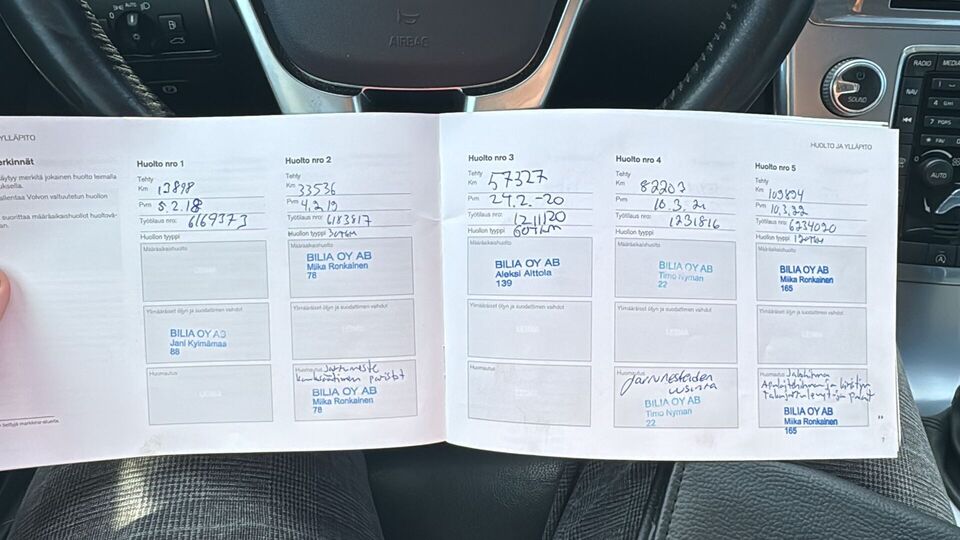 AIRBAG
RADIO
MEDIA
SOUND
NAV
4 GHI
7 PQRS
FAV
AUTO
YLLÄPITO
HUOLTO JA YLLÄPITO
erkinnät
äytyy merkitä jokainen huolto leimalla
uksella.
alientaa Volvon valtuutetun huollon
suorittaa määräaikaishuollot huoltovä-
Huolto nro 1
Tehty
Km 13898
Pvm 5.2.18
Työtilaus nro: 6169373
Huollon tyyppi
Määräaikaishuolto
Ylimääräiset öljyn ja suodattimen vaihdot
BILIA OY AB
Jani Kyimämaa
88
Huomautus
Huolto nro 2
Tehty
Km 33536
Pvm 4.2.19
Työtilaus nro: 6183517
Huollon tyyppi 30tkm
Määräaikaishuolto
BILIA OY AB
Miika Ronkainen
78
Ylimääräiset öljyn ja suodattimen vaihdot
LEIMA
Huomautus Jarruneste
paristot
BILIA OY AB
Miika Ronkainen
78
Huolto nro 3
Tehty
Km 57327
Pvm 24.2.-20
Työtilaus nro: 121120
Huollon tyyppi 60tkm
Määräaikaishuolto
BILIA OY AB
Aleksi Alttola
139
Ylimääräiset öljyn ja suodattimen vaihdot
LEIMA
Huomautus
LEIMA
Huolto nro 4
Tehty
Km 82203
Pvm 10.3.21
Työtilaus nro: 1231816
Huollon tyyppi
Määräaikaishuolto
BILIA OY AB
Timo Nyman
22
Ylimääräiset öljyn ja suodattimen vaihdot
LEIMA
Huomautus
Jarrunesteiden
uusinta
BILIA OY AB
Timo Nyman
22
Huolto nro 5
Tehty
Km 103894
Pvm 10.3.22
Työtilaus nro: 6234020
Huollon tyyppi 120tkm
Määräaikaishuolto
BILIA OY AB
Miika Ronkainen
165
Ylimääräiset öljyn ja suodattimen vaihdot
LEIMA
Huomautus
takajarrulevyt ja palat
BILIA OY AB
Miika Ronkainen
165
7